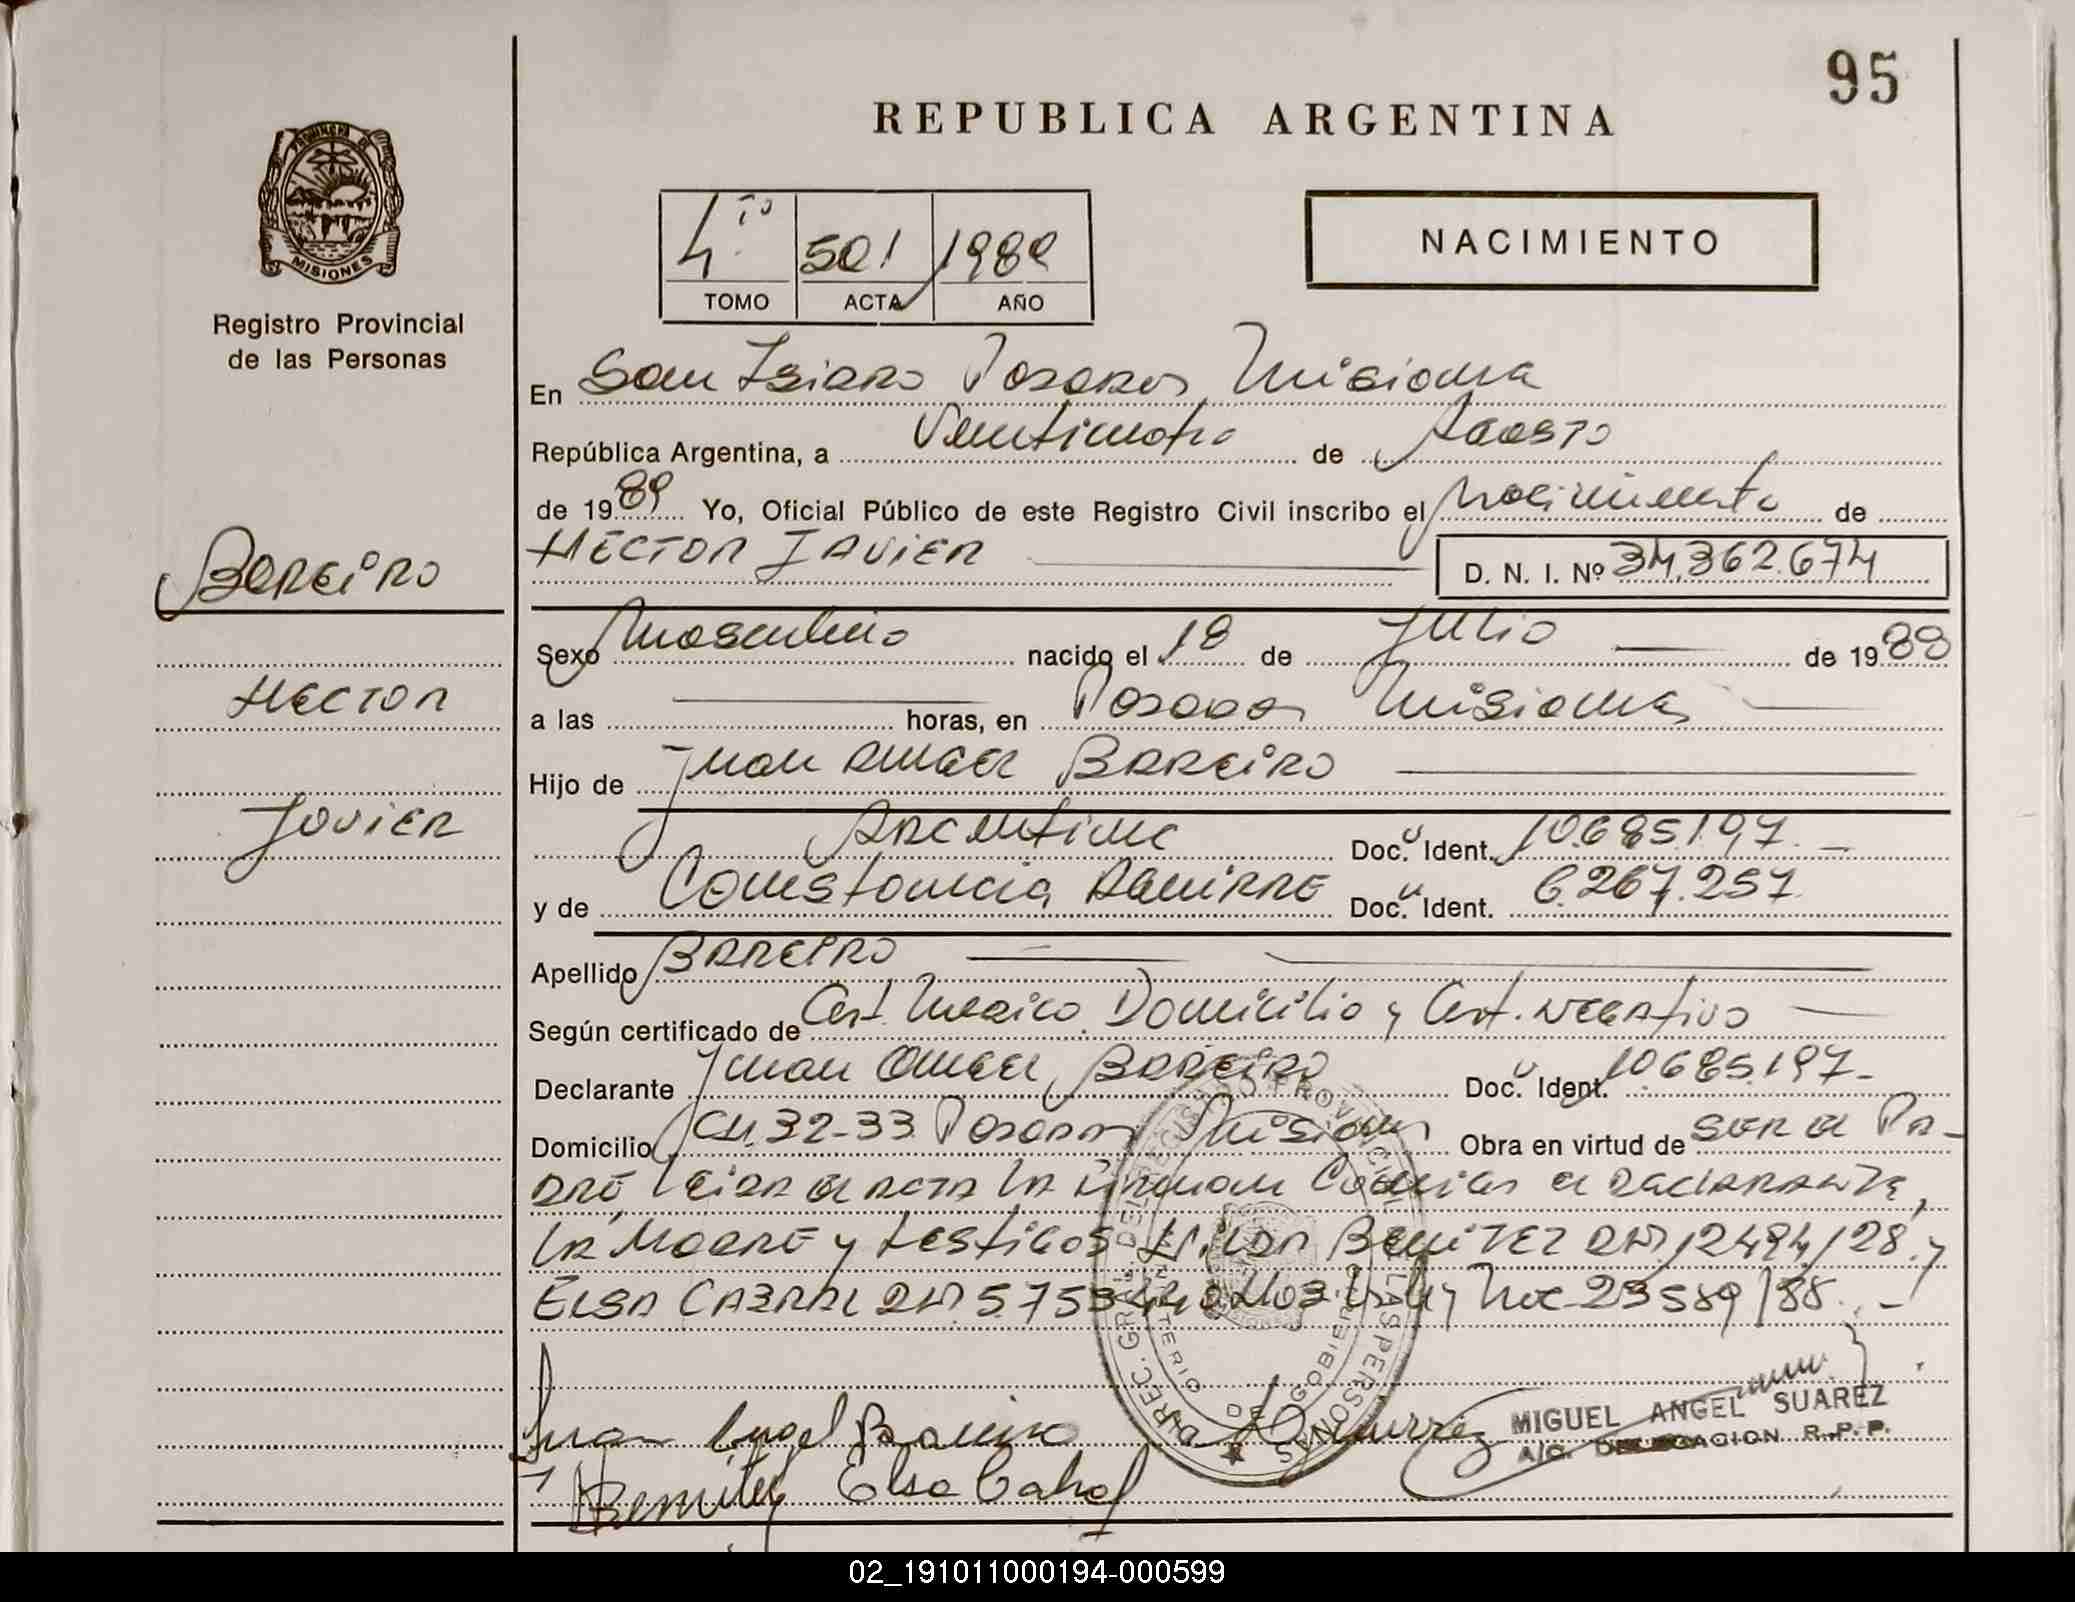 95
REPUBLICA ARGENTINA
PROVINCIA DE
MISIONES
Registro Provincial
de las Personas
4to 501 1989
TOMO ACTA AÑO
NACIMIENTO
En San Isidro Posadas Misiones
República Argentina, a Veinticuatro de Agosto
de 1989 Yo, Oficial Público de este Registro Civil inscribo el Nacimiento de
HECTOR JAVIER D. N. I. Nº 34.362.674
Bareiro
HECTOR
JAVIER
Sexo Masculino nacido el 18 de Julio de 1988
a las horas, en Posadas Misiones
Hijo de Juan Angel BAREIRO
Argentino Doc. Ident. 10.685.197
y de Constancia AGUIRRE Doc. Ident. 6.267.257
Apellido BAREIRO
Según certificado de Cert. Medico Domicilio y Cert. NEGATIVO
Declarante Juan Angel BAREIRO Doc. Ident. 10685.197
Domicilio CH. 32-33 Posadas Misiones Obra en virtud de SER EL PA-
DRE, Leida el acta la firman el DECLARANTE,
LA MADRE y testigos BENITEZ y
ELSA CABRAL
DIREC. GRAL. DEL REGISTRO PROVINCIAL DE LAS PERSONAS
MINISTERIO DE GOBIERNO
Juan Angel Bareiro
MIGUEL ANGEL SUAREZ
A/C. DELEGACION R.P.P.
Benitez Elsa Cabral
02_191011000194-000599